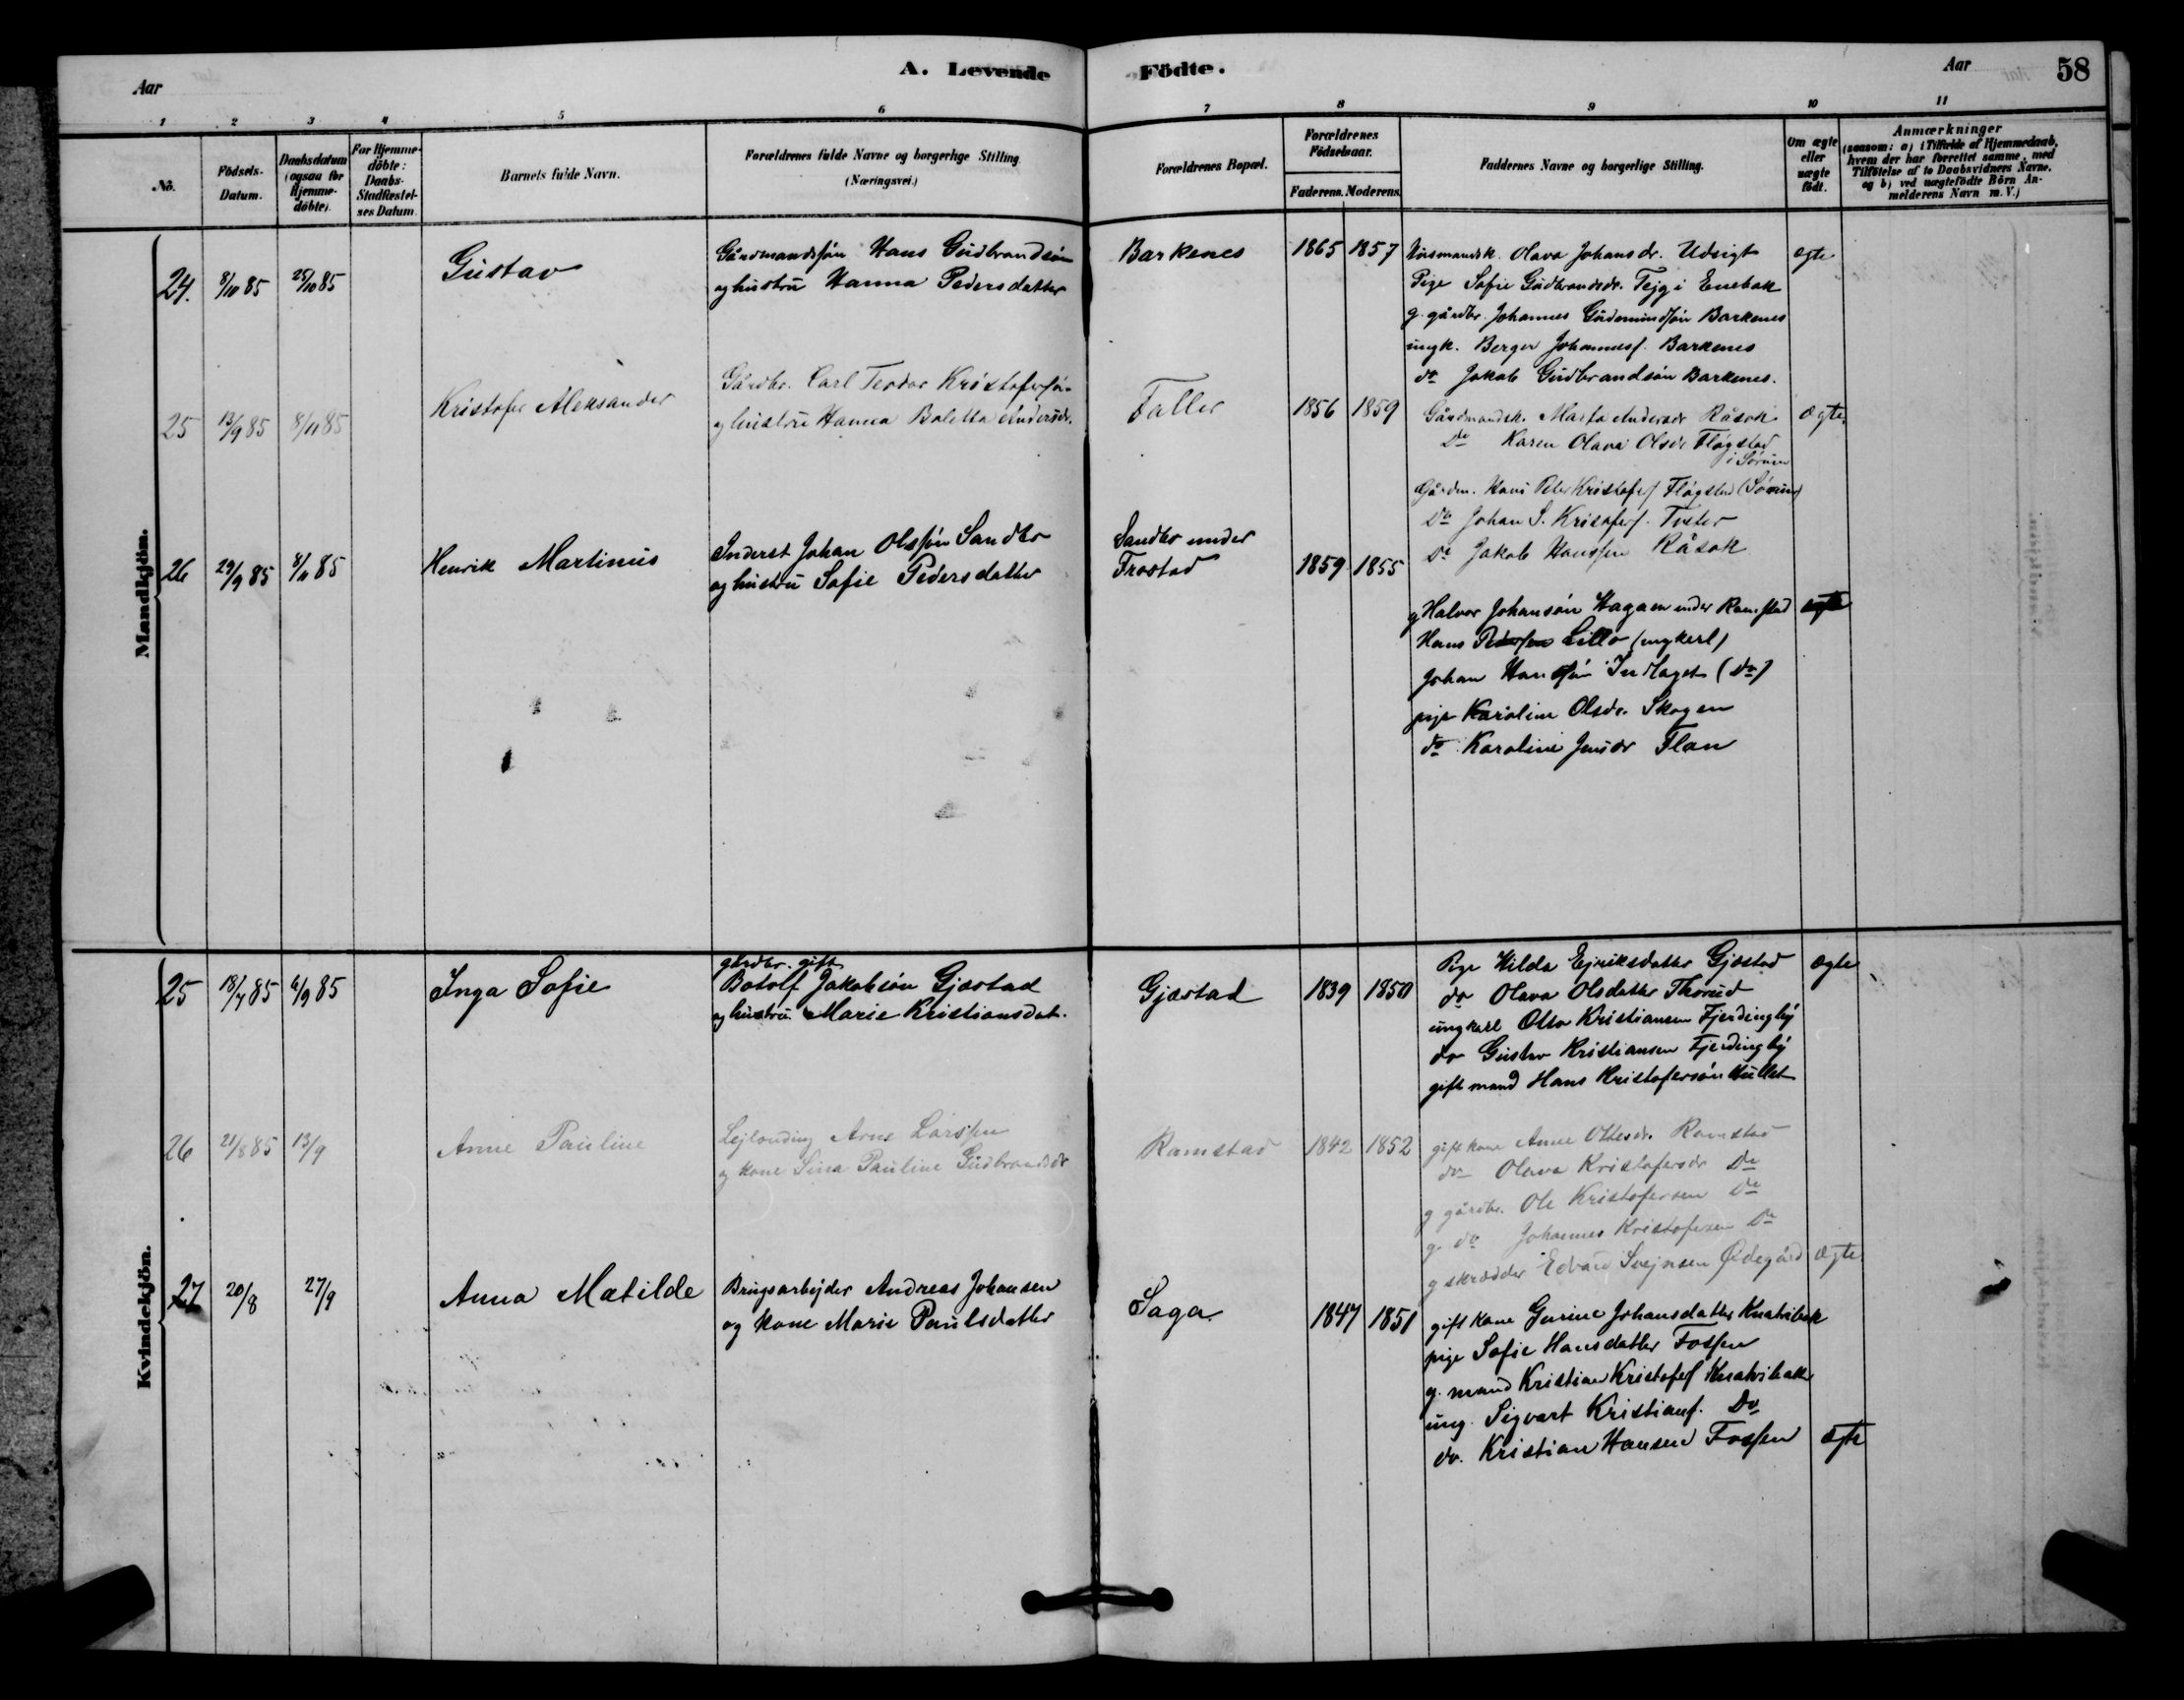 Aar
A. Levende Födte.
Aar
58
1 2 3 4 5 6 7 8 9 10 11
No.
Födsels-Datum.
Daabsdatum (ogsaa for Hjemme-döbte).
For Hjemme-döbte: Daabs-Stadfæstel-ses Datum.
Barnets fulde Navn.
Forældrenes fulde Navne og borgerlige Stilling (Næringsvei.)
Forældrenes Bopæl.
Forældrenes Födselsaar.
Faderens. Moderens.
Faddernes Navne og borgerlige Stilling.
Om ægte eller uægte födt.
Anmærkninger (saasom: a) i Tilfælde af Hjemmedaab, hvem der har forrettet samme, med Tilföielse af to Daabsvidners Navne. og b) ved uægtefödte Börn An-melderens Navn m. V.)
Mandkjön.
24. 8/10 85 25/10 85 Gustav
Gårdmandssøn Hans Gudbrandsøn
og hustru Hanna Pedersdatter
Barkenes 1865 1857
Husmandsk. Olava Johansdr. Udsigt ægte
Pige Sofie Gudbrandsdr. Tejg i Enebak
g. gårdbr. Johannes Gudmundsøn Barkenes
ungk. Berger Johannesf. Barkenes
do Jakob Gudbrandsøn Barkenes.
25 13/9 85 8/11 85 Kristofer Aleksander
Gårdbr. Carl Teodor Kristofersøn
og hustru Hanna Boletta Andersdr.
Faller 1856 1859
Gårdmandsk. Marta Andersdr Råsok ægte
Do Karen Olava Olsdr Fløgstad
i Sørum
Gårdm. Hans Peter Kristofersf Fløgstad (Sørum)
Do Johan S. Kristofersf. Tveter
Do Jakob Hanssen Råsok
26 29/9 85 8/11 85 Henrik Martinus
Inderst Johan Olssøn Sandbo
og hustru Sofie Pedersdatter
Sandbo under
Frostad 1859 1855
g Halvor Johansøn Hagaen under Ramstad ægte
Hans Pedersen Lillo (ungkarl)
Johan Hansøn Indlaget (do)
pige Karoline Olsdr. Skogen
do Karoline Jensdr Flan
Kvindekjön.
25 18/7 85 6/9 85 Inga Sofie
gårdbr. gift
Botolf Jakobsøn Gjæstad
og hustru Marie Kristiansdat.
Gjæstad 1839 1850
Pige Hilda Ejriksdatter Gjæstad ægte
do Olava Olsdatter Thorud
ungkarl Otto Kristiansen Fjerdingby
do Gustav Kristiansen Fjerdingby
gift mand Hans Kristofersøn Hullet
26 21/8 85 13/9 Anne Pauline
Lejlending Arne Larssen
og kone Lina Pauline Gudbrandsdr
Ramstad 1842 1852
gift kone Anne Ottesdr. Ramstad
do Olava Kristofersdr Do
g gårdbr. Ole Kristofersen Do
g. do Johannes Kristofersen Do
g skrædder Edvard Svejnsen Ødegård ægte
27 20/8 27/9 Anna Matilde
Brugsarbejder Andreas Johansen
og kone Marie Paulsdatter
Saga 1847 1851
gift kone Gurine Johansdatter Knatvibak
pige Sofie Hansdatter Fossen
g. mand Kristian Kristofersf Knatvibak
ung. Sigvart Kristiansf. Do
do. Kristian Hansen Fossen ægte